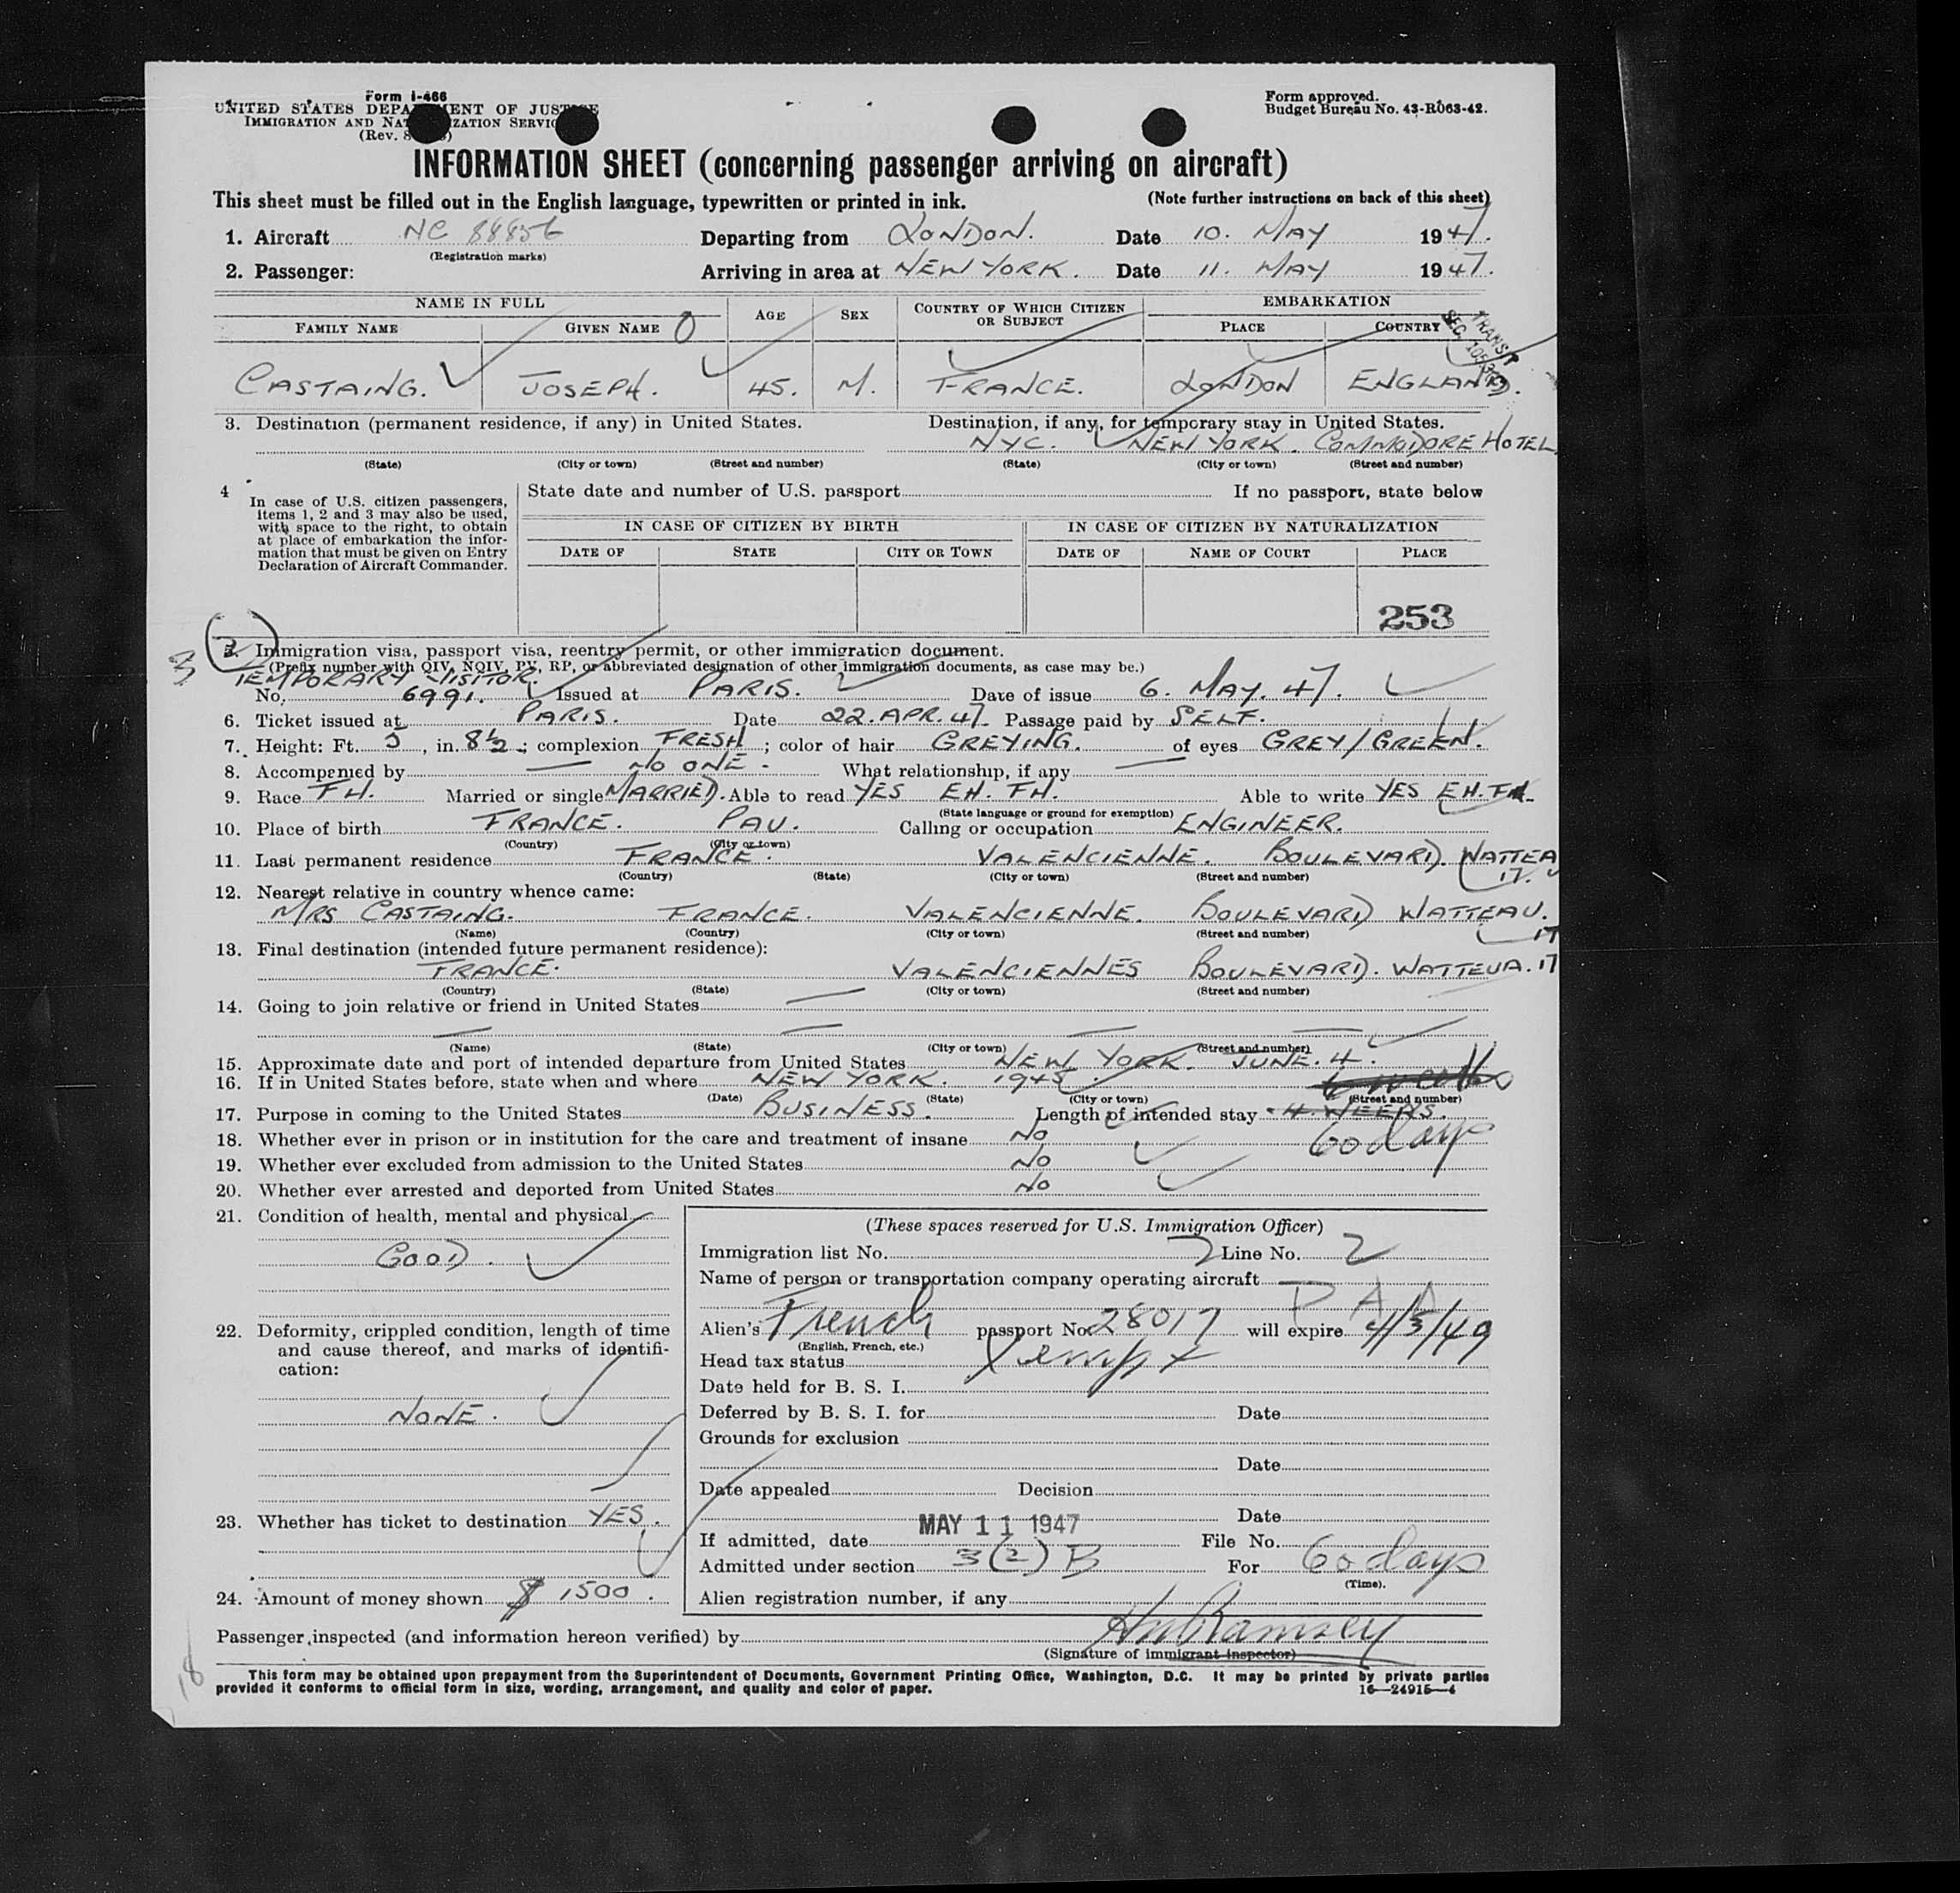 Form I-466
UNITED STATES DEPARTMENT OF JUSTICE
IMMIGRATION AND NATURALIZATION SERVICE
(Rev. 8
Form approved.
Budget Bureau No. 43-R063-42.
INFORMATION SHEET (concerning passenger arriving on aircraft)
This sheet must be filled out in the English language, typewritten or printed in ink. (Note further instructions on back of this sheet)
1. Aircraft NC 88856 Departing from LONDON. Date 10. MAY 1947.
(Registration marks)
2. Passenger: Arriving in area at NEW YORK. Date 11. MAY 1947.
NAME IN FULL AGE SEX COUNTRY OF WHICH CITIZEN OR SUBJECT EMBARKATION
FAMILY NAME GIVEN NAME PLACE COUNTRY
TRANSIT
CASTAING. JOSEPH. 45. M. FRANCE. LONDON ENGLAND.
3. Destination (permanent residence, if any) in United States. Destination, if any, for temporary stay in United States.
NYC. NEW YORK. COMMODORE HOTEL
(State) (City or town) (Street and number) (State) (City or town) (Street and number)
4 In case of U.S. citizen passengers,
items 1, 2 and 3 may also be used,
with space to the right, to obtain
at place of embarkation the infor-
mation that must be given on Entry
Declaration of Aircraft Commander.
State date and number of U.S. passport If no passport, state below
IN CASE OF CITIZEN BY BIRTH IN CASE OF CITIZEN BY NATURALIZATION
DATE OF STATE CITY OR TOWN DATE OF NAME OF COURT PLACE
253
3
5. Immigration visa, passport visa, reentry permit, or other immigration document.
(Prefix number with QIV, NQIV, PV, RP, or abbreviated designation of other immigration documents, as case may be.)
TEMPORARY VISITOR.
No. 6991. Issued at PARIS. Date of issue 6. MAY. 47.
6. Ticket issued at PARIS. Date 22. APR. 47. Passage paid by SELF.
7. Height: Ft. 5, in. 8½; complexion FRESH; color of hair GREYING. of eyes GREY/GREEN.
8. Accompanied by — NO ONE. What relationship, if any —
9. Race FH. Married or single MARRIED. Able to read YES EH. FH. Able to write YES EH. FH.
(State language or ground for exemption)
10. Place of birth FRANCE. PAU. Calling or occupation ENGINEER.
(Country) (City or town)
11. Last permanent residence FRANCE. VALENCIENNE. BOULEVARD. WATTEA
17.
(Country) (State) (City or town) (Street and number)
12. Nearest relative in country whence came:
MRS CASTAING. FRANCE. VALENCIENNE. BOULEVARD WATTEAU.
17
(Name) (Country) (City or town) (Street and number)
13. Final destination (intended future permanent residence):
FRANCE. VALENCIENNES BOULEVARD. WATTEUA. 17
(Country) (State) (City or town) (Street and number)
14. Going to join relative or friend in United States —
— — — —
(Name) (State) (City or town) (Street and number)
15. Approximate date and port of intended departure from United States NEW YORK. JUNE. 4.
16. If in United States before, state when and where NEW YORK. 1945.
(Date) (State) (City or town) (Street and number)
17. Purpose in coming to the United States BUSINESS. Length of intended stay 4. WEEKS.
60 days
18. Whether ever in prison or in institution for the care and treatment of insane NO
19. Whether ever excluded from admission to the United States NO
20. Whether ever arrested and deported from United States NO
21. Condition of health, mental and physical
GOOD.
22. Deformity, crippled condition, length of time
and cause thereof, and marks of identifi-
cation:
NONE.
23. Whether has ticket to destination YES.
24. Amount of money shown $ 1500.
(These spaces reserved for U.S. Immigration Officer)
Immigration list No. 2 Line No. 2
Name of person or transportation company operating aircraft
P A A
Alien's French passport No. 28017 will expire 4/3/49
(English, French, etc.)
Head tax status Xempt
Date held for B. S. I.
Deferred by B. S. I. for Date
Grounds for exclusion
Date
Date appealed Decision
Date
If admitted, date MAY 11 1947 File No.
Admitted under section 3(2) B For 60 days
(Time).
Alien registration number, if any
Passenger inspected (and information hereon verified) by Ramsey
(Signature of immigrant inspector)
18
This form may be obtained upon prepayment from the Superintendent of Documents, Government Printing Office, Washington, D.C. It may be printed by private parties
provided it conforms to official form in size, wording, arrangement, and quality and color of paper. 16—24915—4